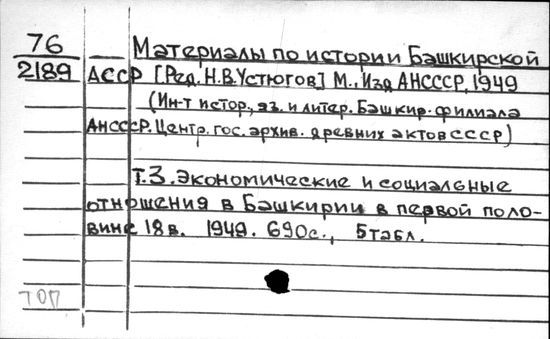 76
2189
Материалы по истории Башкирской
АССР [Ред. Н.В.Устюгов] М., Изд АНСССР, 1949
(Ин-т истор., яз. и литер. Башкир. филиала
АНСССР. Центр. гос. архив. древних актов СССР)
Т.3. Экономические и социальные
отношения в Башкирии в первой поло-
вине 18 в. 1949. 690с., 5 табл.
ТОП